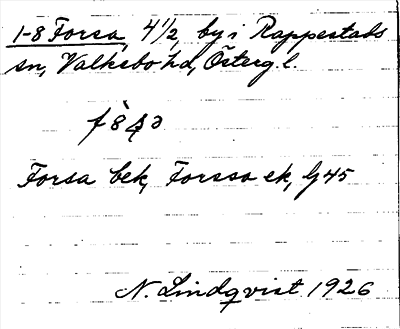 1-8 Forsa, 4 1/2, by i Rappestads
sn, Valkebo hd, Österg.l.
Forsa bek, Forssa ek, Gj 45
N. Lindqvist 1926